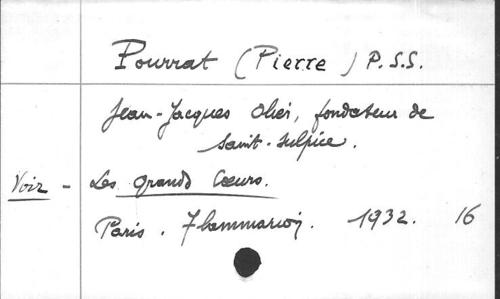 Pourrat (Pierre) P.S.S.
Jean-Jacques Olier, fondateur de
Saint-Sulpice.
Voir - Les Grands Cœurs.
Paris. Flammarion. 1932. 16